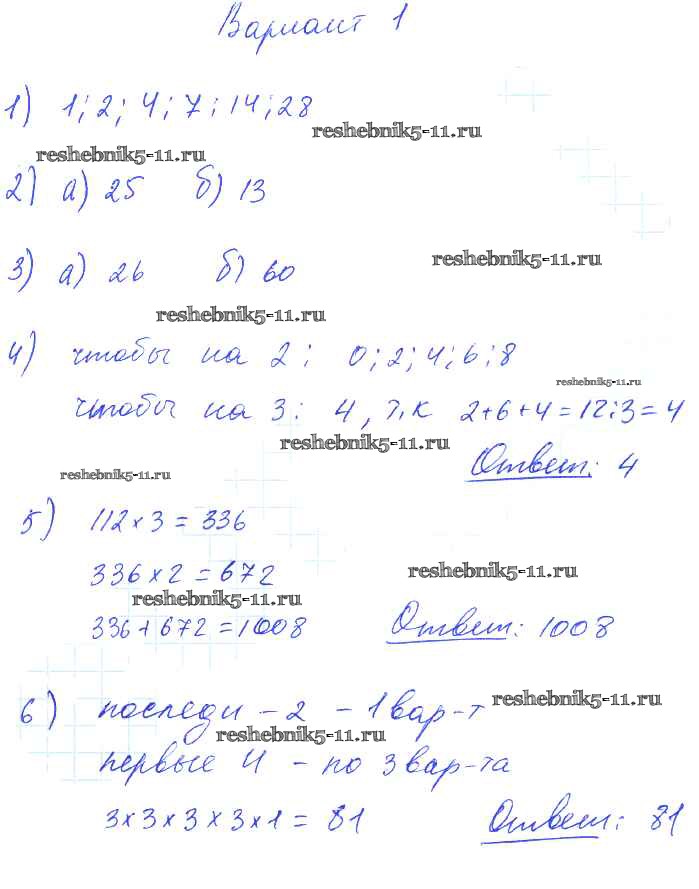 Вариант 1
1) 1; 2; 4; 7; 14; 28
reshebnik5-11.ru
reshebnik5-11.ru
2) а) 25 б) 13
3) а) 26 б) 60
reshebnik5-11.ru
reshebnik5-11.ru
4) чтобы на 2: 0; 2; 4; 6; 8
reshebnik5-11.ru
чтобы на 3: 4, т.к 2+6+4=12:3=4
reshebnik5-11.ru
Ответ: 4
reshebnik5-11.ru
5) 112×3=336
336×2=672
reshebnik5-11.ru
reshebnik5-11.ru
336+672=1008 Ответ: 1008
6) последн - 2 - 1 вар-т
reshebnik5-11.ru
reshebnik5-11.ru
первые 4 - по 3 вар-та
3×3×3×3×1=81 Ответ: 81